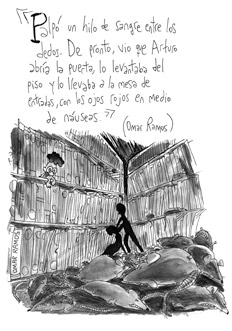 “Palpó un hilo de sangre entre los
dedos. De pronto, vio que Arturo
abría la puerta, lo levantaba del
piso y lo llevaba a la mesa de
entradas, con los ojos rojos en medio
de náuseas.”
(Omar Ramos)
OMAR RAMOS